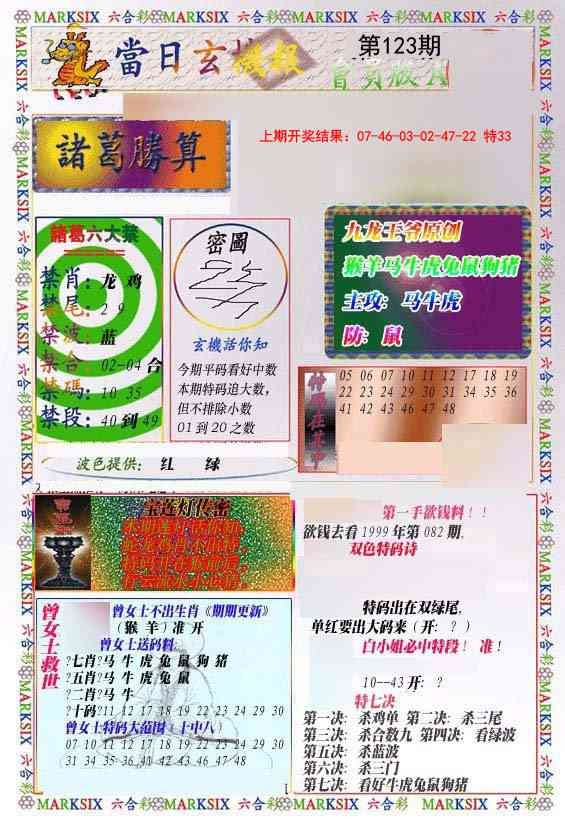 MARKSIX 六合彩 MARKSIX 六合彩 MARKSIX 六合彩 MARKSIX 六合彩
當日玄機報
第123期
諸葛勝算
上期开奖结果：07-46-03-02-47-22 特33
諸葛六大禁
禁肖：龙 鸡
禁尾：2 9
禁波：蓝
禁合：02-04合
禁碼：10 35
禁段：40到49
密圖
玄機活你知
今期平码看好中数
本期特码追大数，
但不排除小数
01到20之数
九龙王爷原创
猴羊马牛虎兔鼠狗猪
主攻：马牛虎
防：鼠
特码在其中
05 06 07 10 11 12 17 18 19
22 23 24 29 30 31 34 35 36
41 42 43 46 47 48
波色提供：红 绿
宝莲灯传密
第一手欲钱料！！
欲钱去看1999年第082期。
双色特码诗
特码出在双绿尾，
单红要出大码来（开：？）
白小姐必中特段！ 准！
10--43开：？
特七决
第一决：杀鸡单 第二决：杀三尾
第三决：杀合数九 第四决：看绿波
第五决：杀蓝波
第六决：杀三门
第七决：看好牛虎兔鼠狗猪
曾女士救世
曾女士不出生肖《期期更新》
（猴 羊）准开
曾女士送码料：
?七肖?马 牛 虎 兔 鼠 狗 猪
?五肖?马 牛 虎 兔 鼠
?二肖?马 牛
?十码?11 12 17 18 19 22 23 24 29 30
曾女士特码大范围（十中八）
07 10 11 12 17 18 19 22 23 24 29 30
31 34 35 36 41 42 43 46 47 48
MARKSIX 六合彩 MARKSIX 六合彩 MARKSIX 六合彩 MARKSIX 六合彩